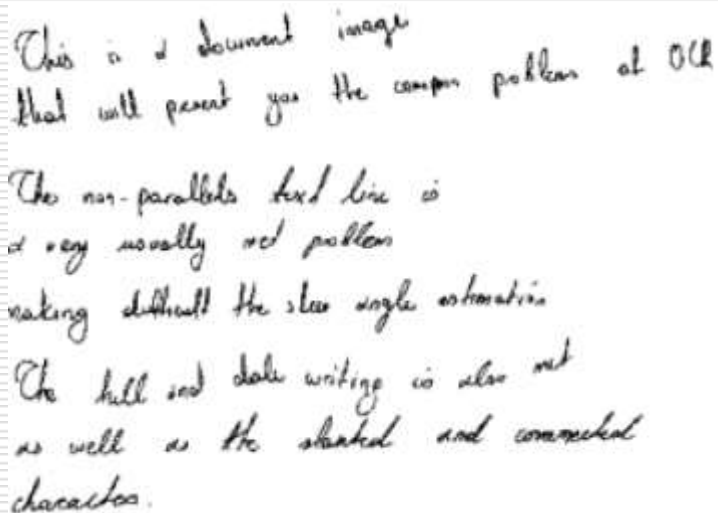 This is a document image
that will present you the common problems of OCR
The non-parallels text line is
a very usually met problem
making difficult the skew angle estimation
The hill and dale writing is also met
as well as the slanted and connected
characters.